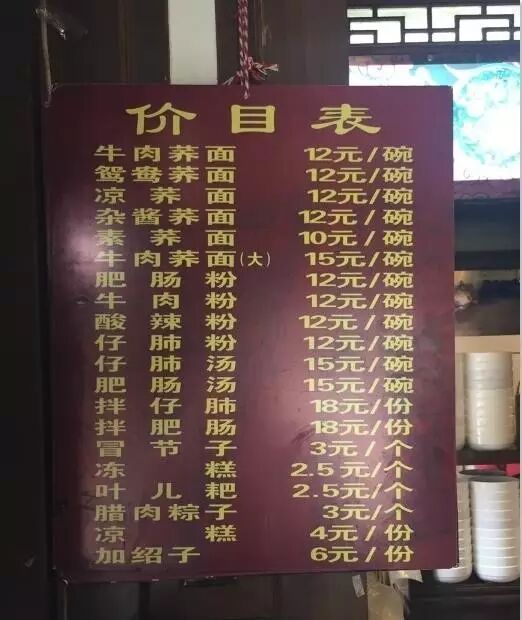 价目表
牛肉荞面 12元/碗
鸳鸯荞面 12元/碗
凉荞面 12元/碗
杂酱荞面 12元/碗
素荞面 10元/碗
牛肉荞面(大) 15元/碗
肥肠粉 12元/碗
牛肉粉 12元/碗
酸辣粉 12元/碗
仔肺粉 12元/碗
仔肺汤 15元/碗
肥肠汤 15元/碗
拌仔肺 18元/份
拌肥肠 18元/份
冒节子 3元/个
冻糕 2.5元/个
叶儿耙 2.5元/个
腊肉粽子 3元/个
凉糕 4元/份
加绍子 6元/份